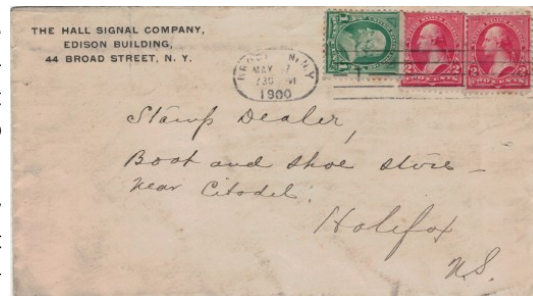 THE HALL SIGNAL COMPANY,
EDISON BUILDING,
44 BROAD STREET, N. Y.
N.Y.
MAY 7
730
1900
2 2
TWO CENTS
Stamp Dealer,
Boot and shoe store -
near Citadel.
Halifax
N.S.